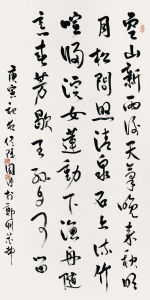 空山新雨後天氣晚来秋明
月松間照清泉石上流竹
喧歸浣女蓮動下漁舟隨
意春芳歇王孫自可留
庚寅 於鄭州